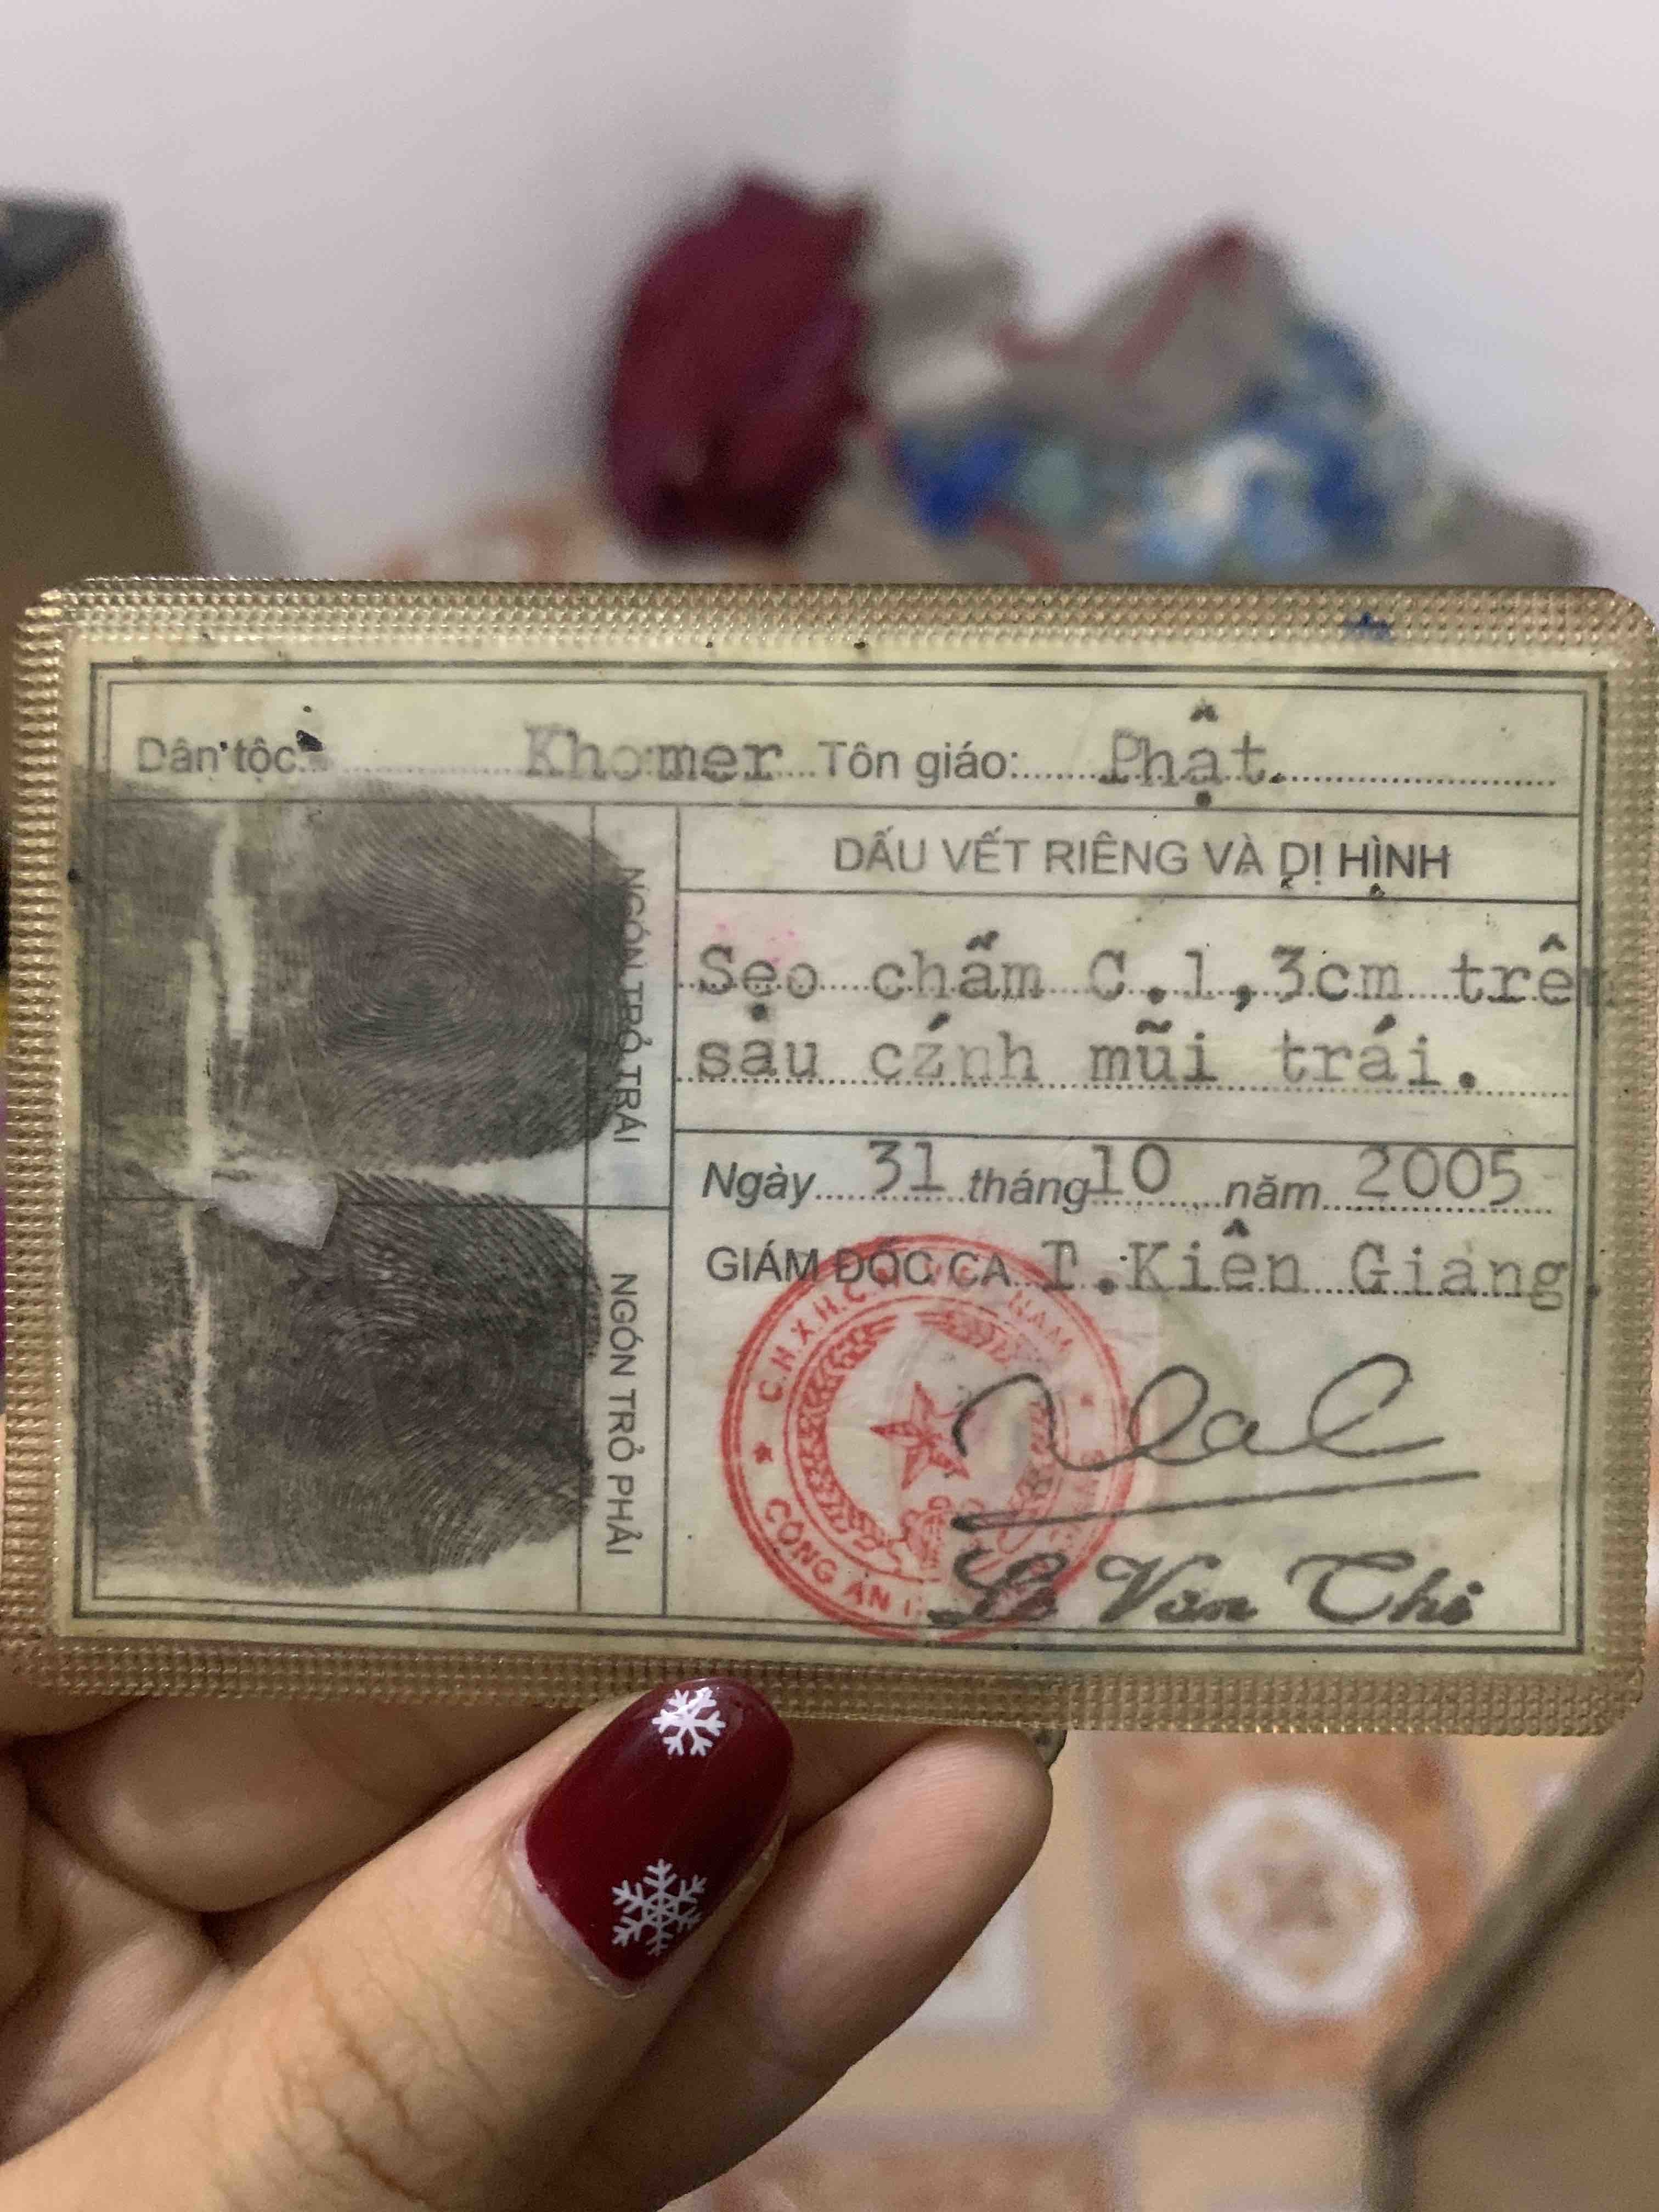 Dân tộc: Khơmer Tôn giáo: Phật.
NGÓN TRỎ TRÁI
DẤU VẾT RIÊNG VÀ DỊ HÌNH
Sẹo chấm C.1,3cm trên
sau cánh mũi trái.
Ngày 31 tháng 10 năm 2005
GIÁM ĐỐC CA T.Kiên Giang.
NGÓN TRỎ PHẢI
C.H.X.H.C.N NAM
CÔNG AN
Lê Văn Thi